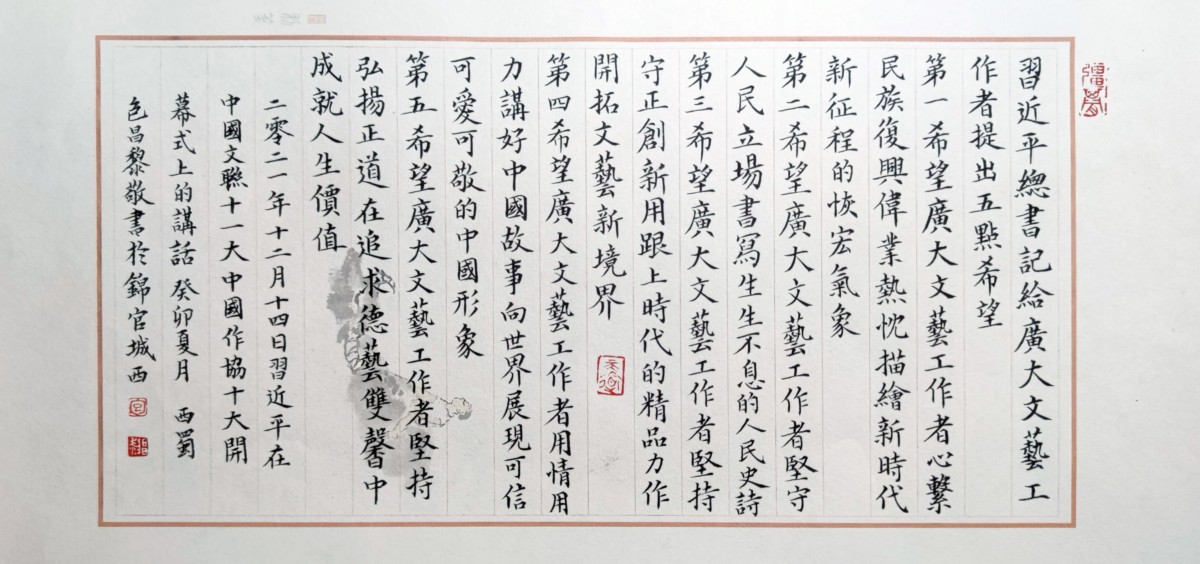 習近平總書記給廣大文藝工
作者提出五點希望
第一希望廣大文藝工作者心繫
民族復興偉業熱忱描繪新時代
新征程的恢宏氣象
第二希望廣大文藝工作者堅守
人民立場書寫生生不息的人民史詩
第三希望廣大文藝工作者堅持
守正創新用跟上時代的精品力作
開拓文藝新境界
第四希望廣大文藝工作者用情用
力講好中國故事向世界展現可信
可愛可敬的中國形象
第五希望廣大文藝工作者堅持
弘揚正道在追求德藝雙馨中
成就人生價值
二零二一年十二月十四日習近平在
中國文聯十一大中國作協十大開
幕式上的講話 癸卯夏月 西蜀
色昌黎敬書於錦官城西